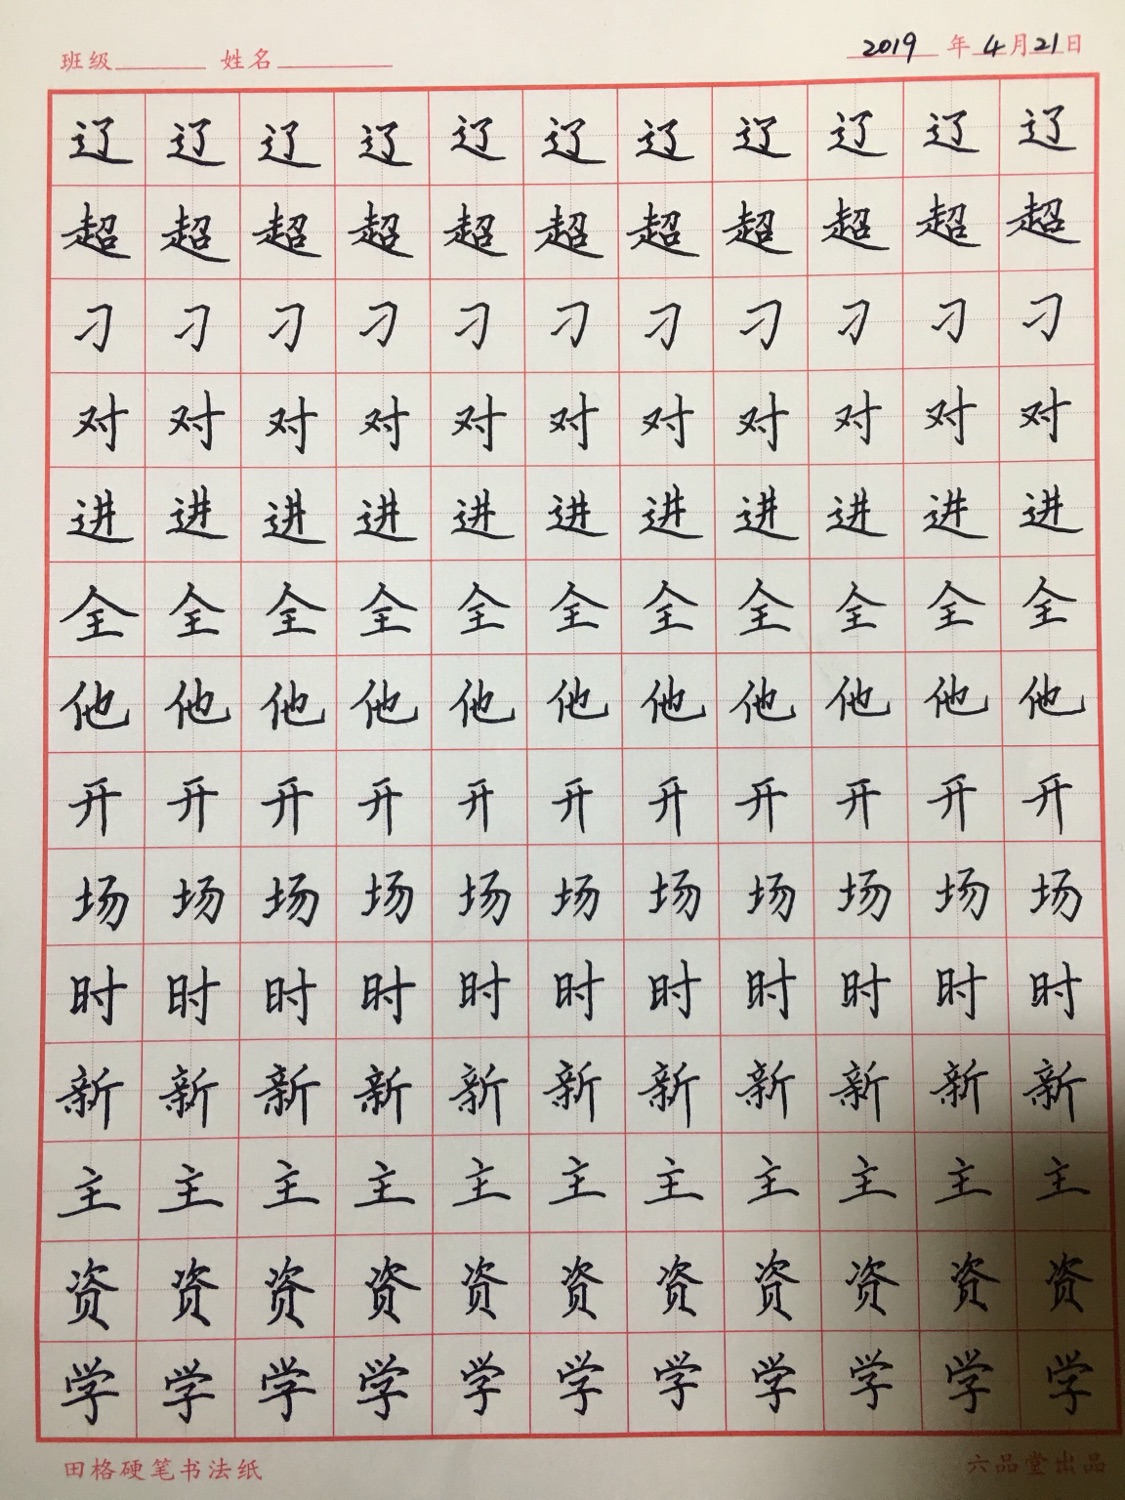 班级 姓名 2019 年 4 月 21 日
辽 辽 辽 辽 辽 辽 辽 辽 辽 辽 辽
超 超 超 超 超 超 超 超 超 超 超
刁 刁 刁 刁 刁 刁 刁 刁 刁 刁 刁
对 对 对 对 对 对 对 对 对 对 对
进 进 进 进 进 进 进 进 进 进 进
全 全 全 全 全 全 全 全 全 全 全
他 他 他 他 他 他 他 他 他 他 他
开 开 开 开 开 开 开 开 开 开 开
场 场 场 场 场 场 场 场 场 场 场
时 时 时 时 时 时 时 时 时 时 时
新 新 新 新 新 新 新 新 新 新 新
主 主 主 主 主 主 主 主 主 主 主
资 资 资 资 资 资 资 资 资 资 资
学 学 学 学 学 学 学 学 学 学 学
田格硬笔书法纸 六品堂出品